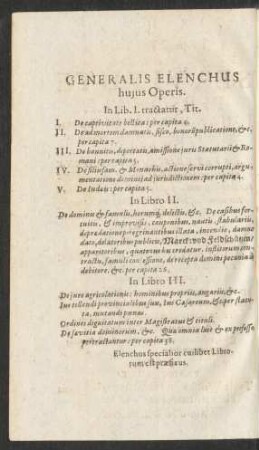 GENERALIS ELENCHUS
hujus Operis.
In Lib. I. tractatur, Tit.
I. De captivitate bellica: per capita 9.
II. De ad mortem damnatis, fisco, bonorũ publicatione, &c.
per capita 7.
III. De bannitis, deportatis, amissione juris Statutarii & Romani: per capita 5.
IV. De filiusfam. & Monachis, actione servi corrupti, argumentatione de
domini ad jurisdictionem: per capita 4.
V. De Iudæis: per capita 5.
In Libro II.
De dominis & famulis, herumq́; delictis, &c. De casibus fortuitis, & improvisis
cauponibus, nautis, stabulariis,
deprædatione peregrinantibus illata, incendio, damno
dato, delatoribus publicis,
apparitoribus, quatenus his credatur,
tractu, famuli confessione, de recepta domini pecunia à
debitore, &c. per capita 26.
In Libro III.
De jure agricolationis: hominibus propriis, angariis, &c.
Ius tollendi provincialium jus, Ius Cæsareum, & super statuta,
mutandi pœnas.
Ordines dignitatum inter Magistratus & tituli.
De sævitia dominorum, &c. Quæ omnia
pertractantur: per capita 38.
Elenchus specialior cuilibet Librorum
est præfixus.